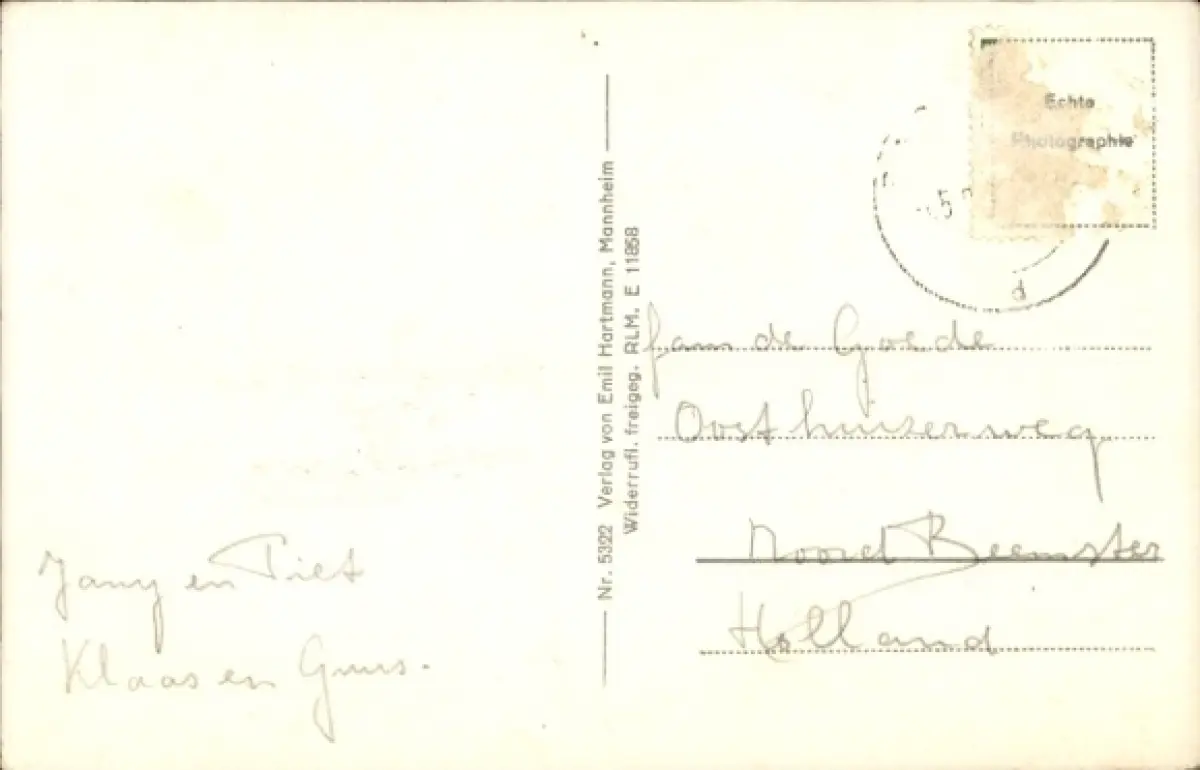 Echte
Photographie
5
d
Nr. 5322 Verlag von Emil Hartmann, Mannheim
Widerrufl. freigeg. RLM. E 11858
fam de Goede
Oosthuizerweg
Noord Beemster
Holland
Jany en Piet
Klaas en Guus.